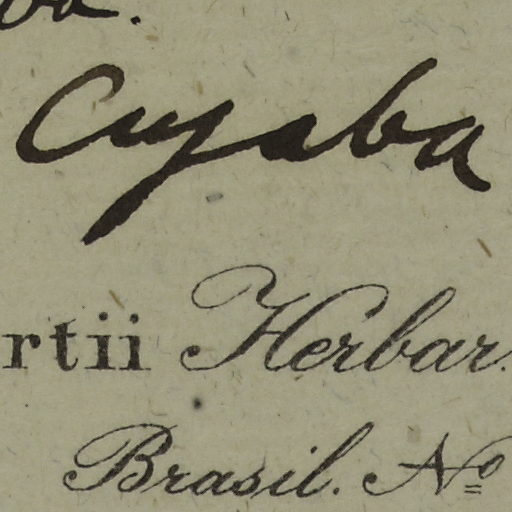 Cuyaba
rtii Herbar.
Brasil. Nº